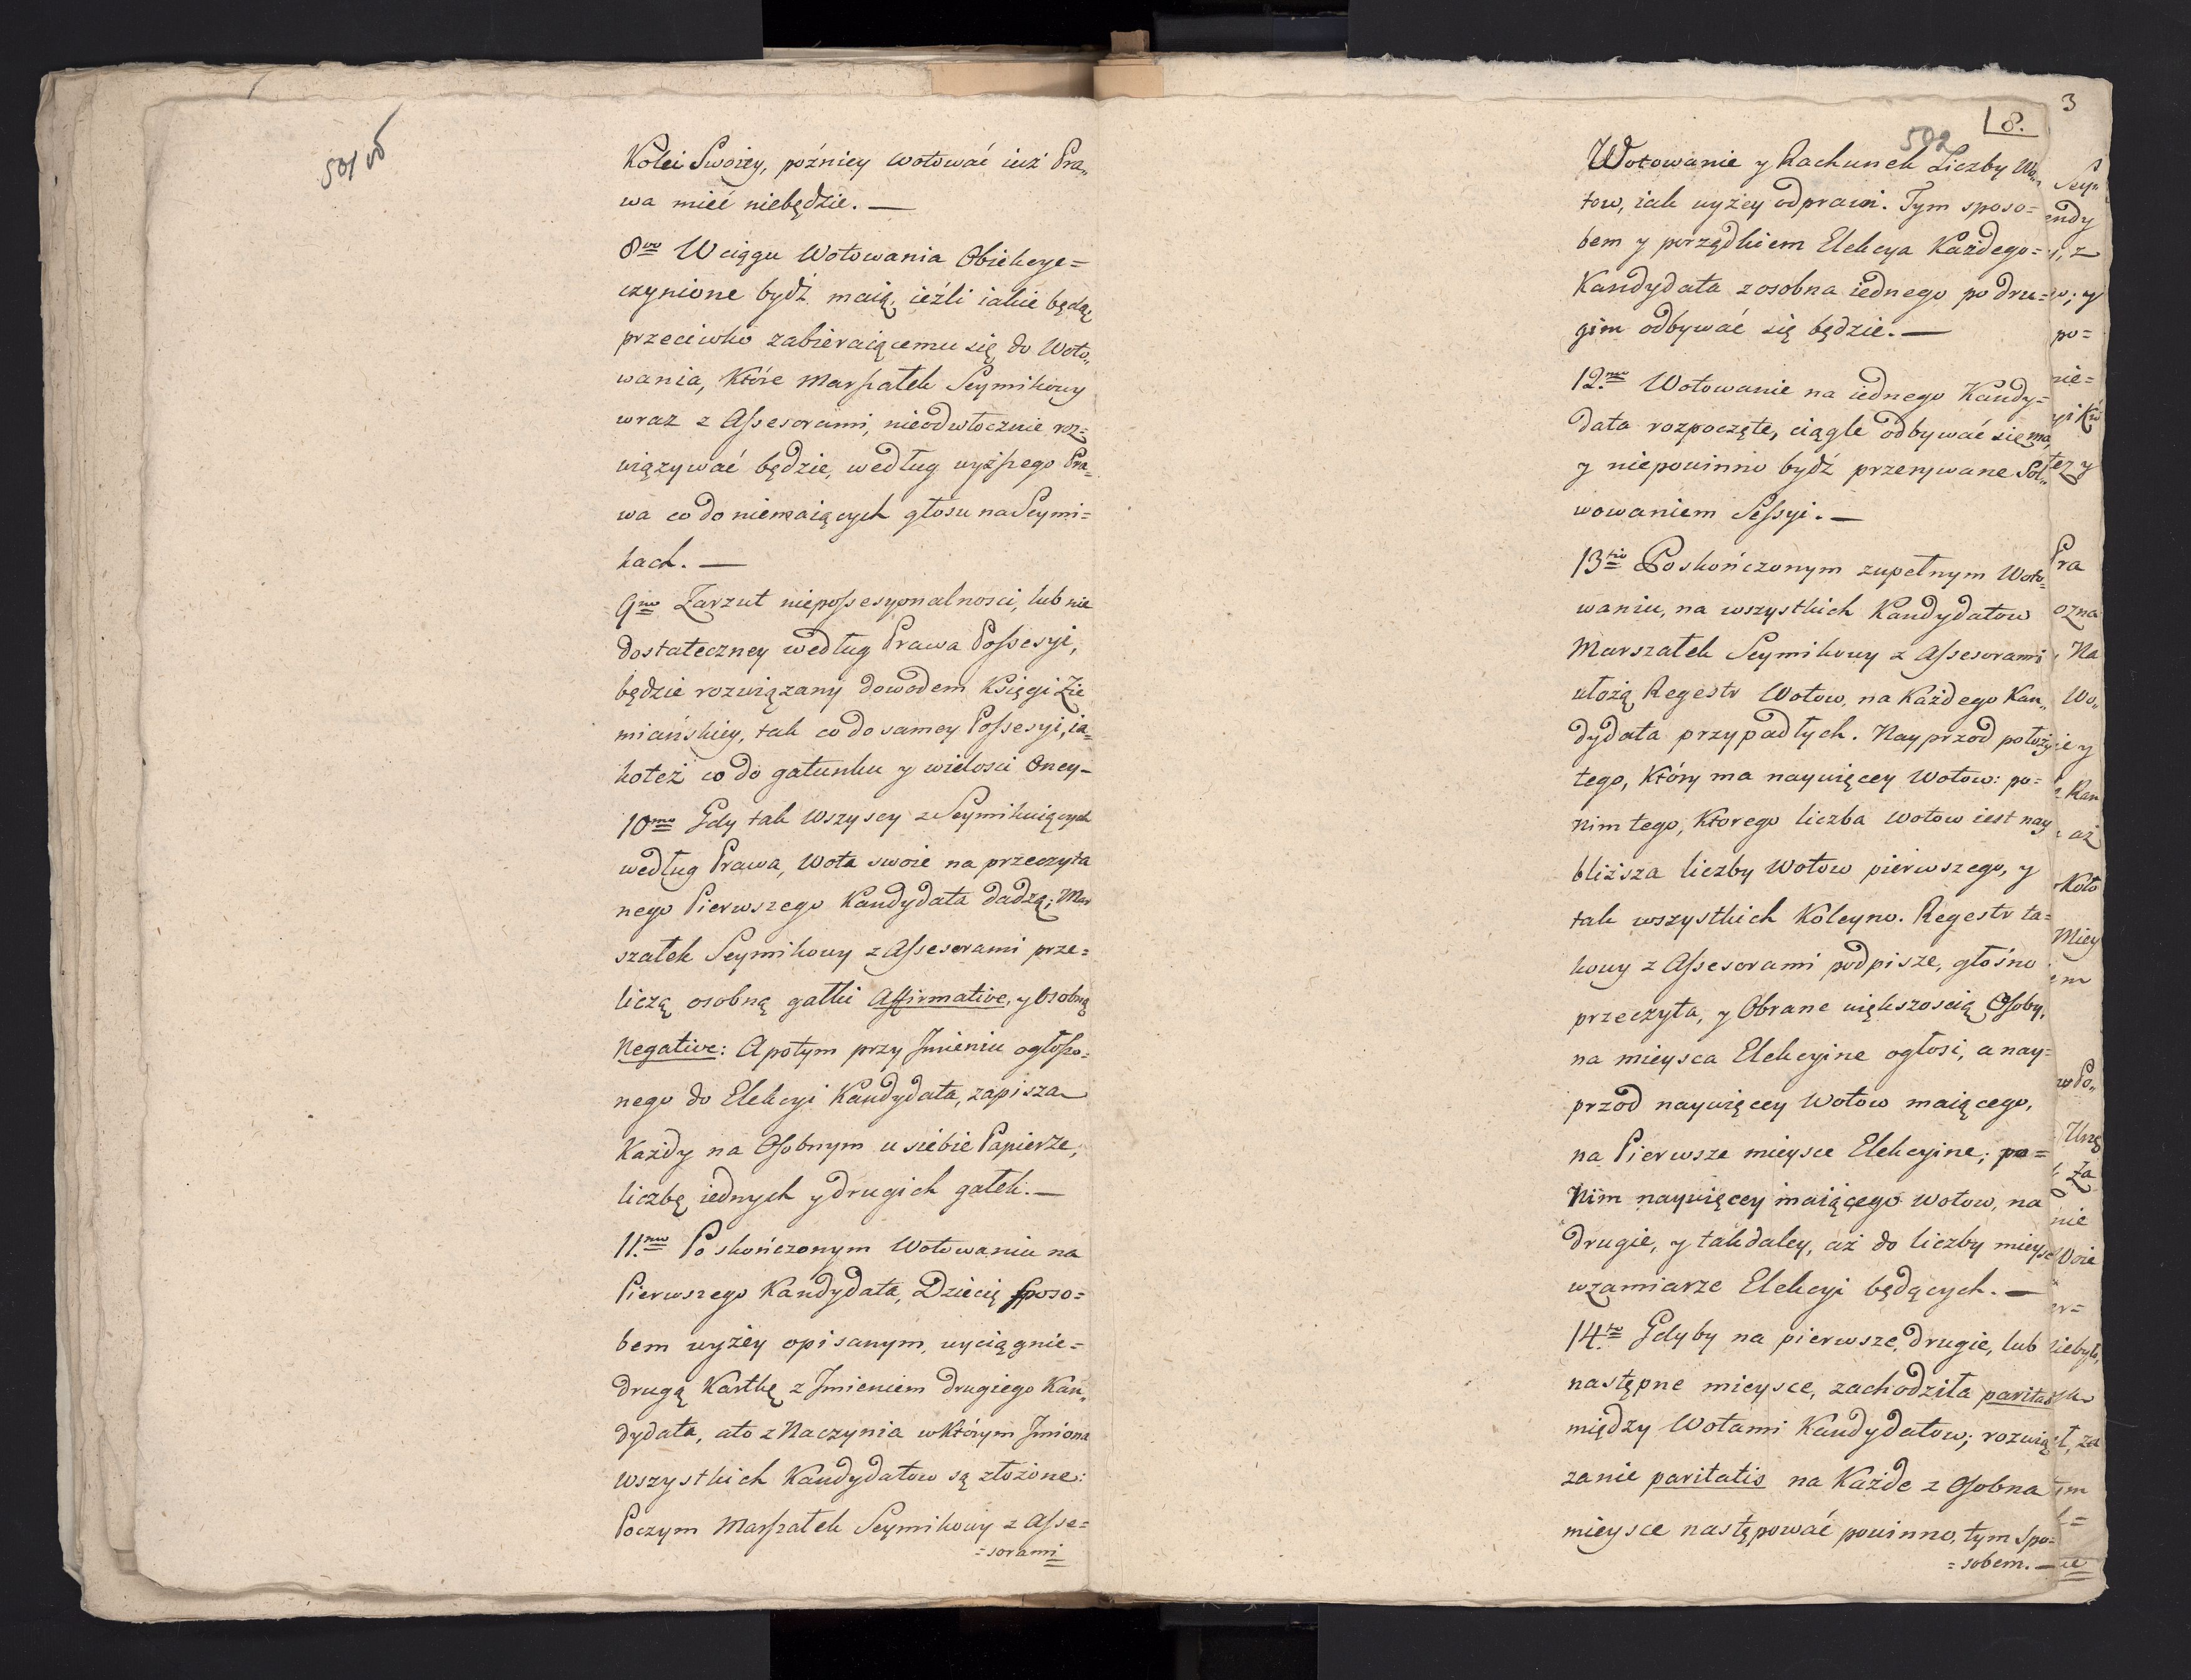 501 vo
Kolei Swoiey, pożniey wotować iuż Pra„
wa mieć niebędzie. —
8vo W ciągu Wotowania Obiekcye=
czynione bydź maią, ieżli iakie będą
przeciwko zabieraiącemu się do Woto„
wania, Które Marszałek Seymikowy
wraz z Assesorami, nieodwłocznie roz=
wiązywać będzie, według wyższego Pra=
wa co do niemaiących głosu na Seymi=
kach. —
9no Zarzut niepossesyonalnosci, lub nie
dostateczney według Prawa Possesyi,
będzie rozwiązany dowodem Księgi Zie
miańskiey, tak co do samey Possesyi, ia=
koteż co do gatunku y wielosci Oney–
10mo Gdy tak Wszyscy z Seymikuiących
według Prawa, Wota swoie na przeczyta
nego Pierwszego Kandydata dadzą; Mar
szałek Seymikowy z Assesorami prze=
liczą osobną gałki Affirmative, y Osobną
Negative: A potym przy Jmieniu ogłoszo=
nego do Elekcyi Kandydata, zapisza
Każdy na Osobnym u siebie Papierze,
liczbę iednych y drugich gałek. —
11.mo Po skończonym Wotowaniu na
Pierwszego Kandydata, Dziecię sposo=
bem wyżey opisanym, wyciągnie=
drugą Kartkę z Jmieniem drugiego Kan„
dydata, a to z Naczynia w Którym Jmiona
wszystkich Kandydatow są złożone:
Poczym Marszałek Seymikowy z Asse=
=sorami
3
8.
502
Wotowanie y Rachunek Liczby Wo„
tow, iak wyżey odprawi. Tym sposo=
bem y porządkiem Elekcya Każdego=
Kandydata z osobna iednego po dru=
gim odbywać się będzie. —
12.mo Wotowanie na iednego Kandy=
data rozpoczęte, ciągle odbywać się ma,
y niepowinno bydź przerywane Sol„
wowaniem Sessyi. —
13tio Po skończonym zupełnym Woto=
waniu, na wszystkich Kandydatow
Marszałek Seymikowy z Assesorami
ułożą Regestr Wotow, na Każdego Kan„
dydata przypadłych. Nayprzod położy
tego, Który ma naywięcey Wotow: po=
nim tego, Ktorego liczba Wotow iest nay
bliższa liczby Wotow pierwszego, y
tak wszystkich Koleyno. Regestr ta=
kowy z Assesorami podpisze, głośno
przeczyta, y Obrane większoscią Osoby,
na mieysca Elekcyine ogłosi, a nay=
przod naywięcey Wotow maiącego,
na Pierwsze mieysce Elekcyine; po=
nim naywięcey maiącego Wotow, na
drugie, y tak daley, aż do liczby mieysc
w zamiarze Elekcyi będących. —
14.to Gdyby na pierwsze, drugie, lub
następne mieysce, zachodziła paritas
między Wotami Kandydatow; rozwią
zanie paritatis na Każde z Osobna
mieysce następować powinno, tym spo=
=sobem. —